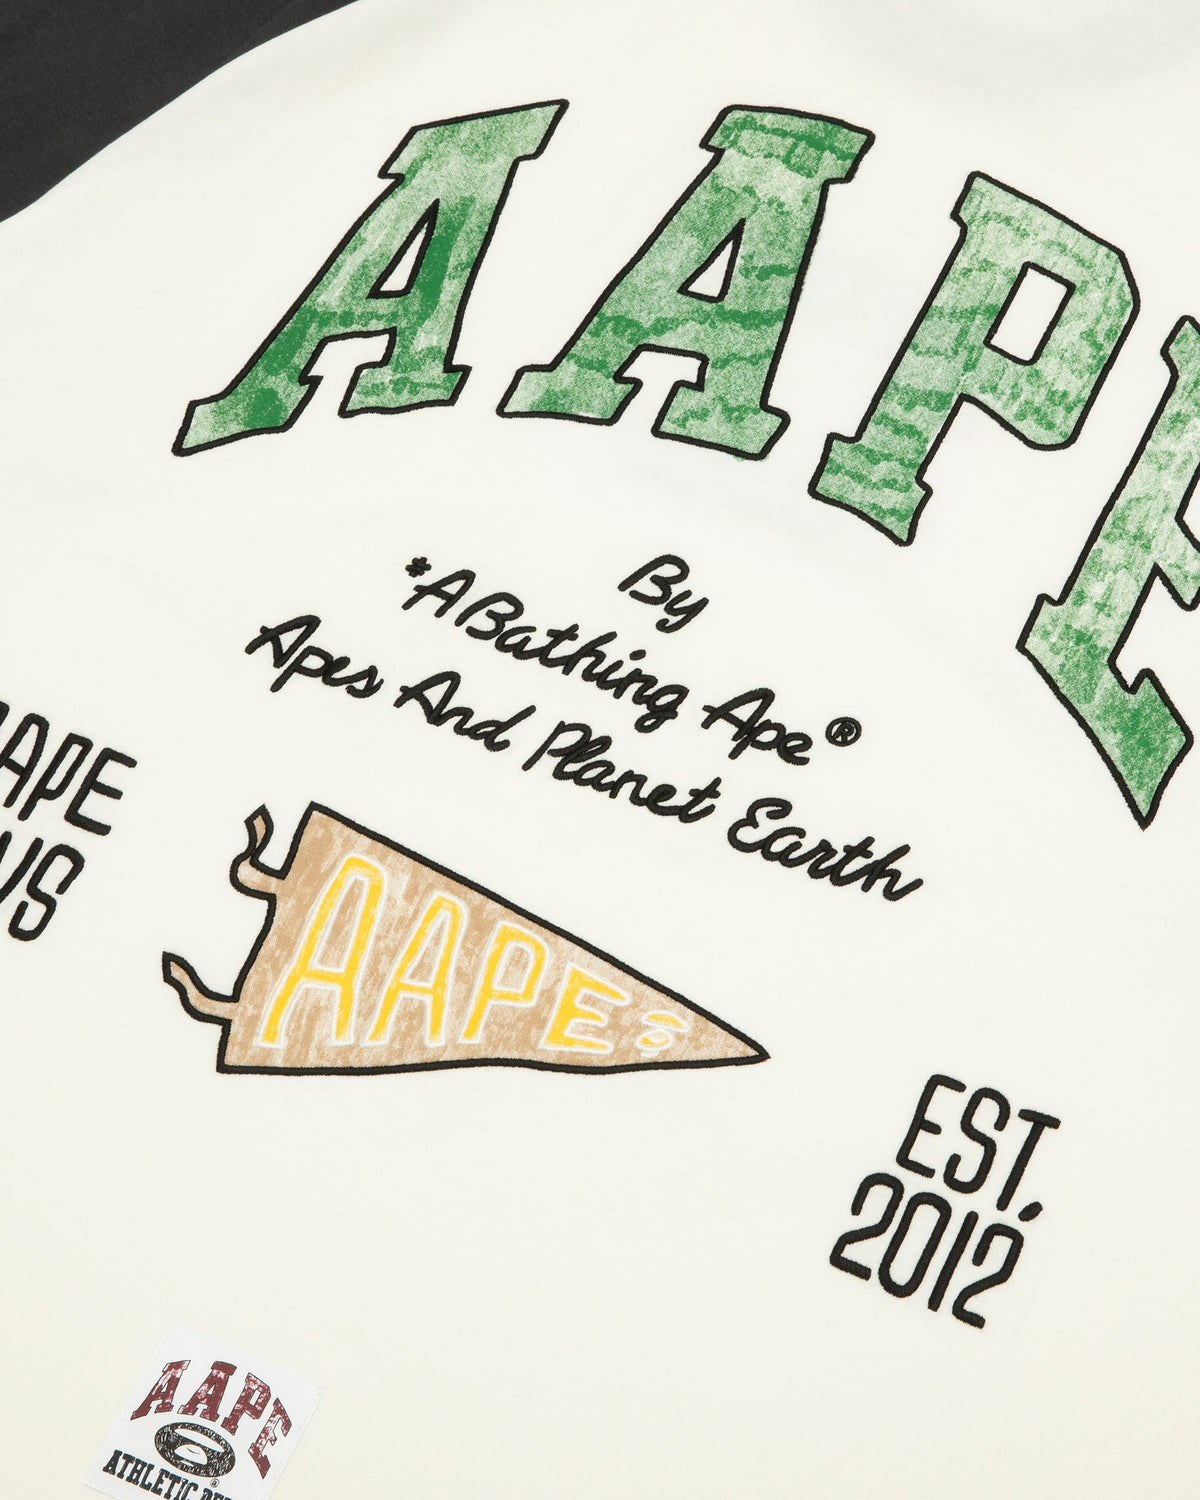 AAPE
By
*A Bathing Ape®
Apes And Planet Earth
AAPE
EST,
2012
AAPE
ATHLETIC